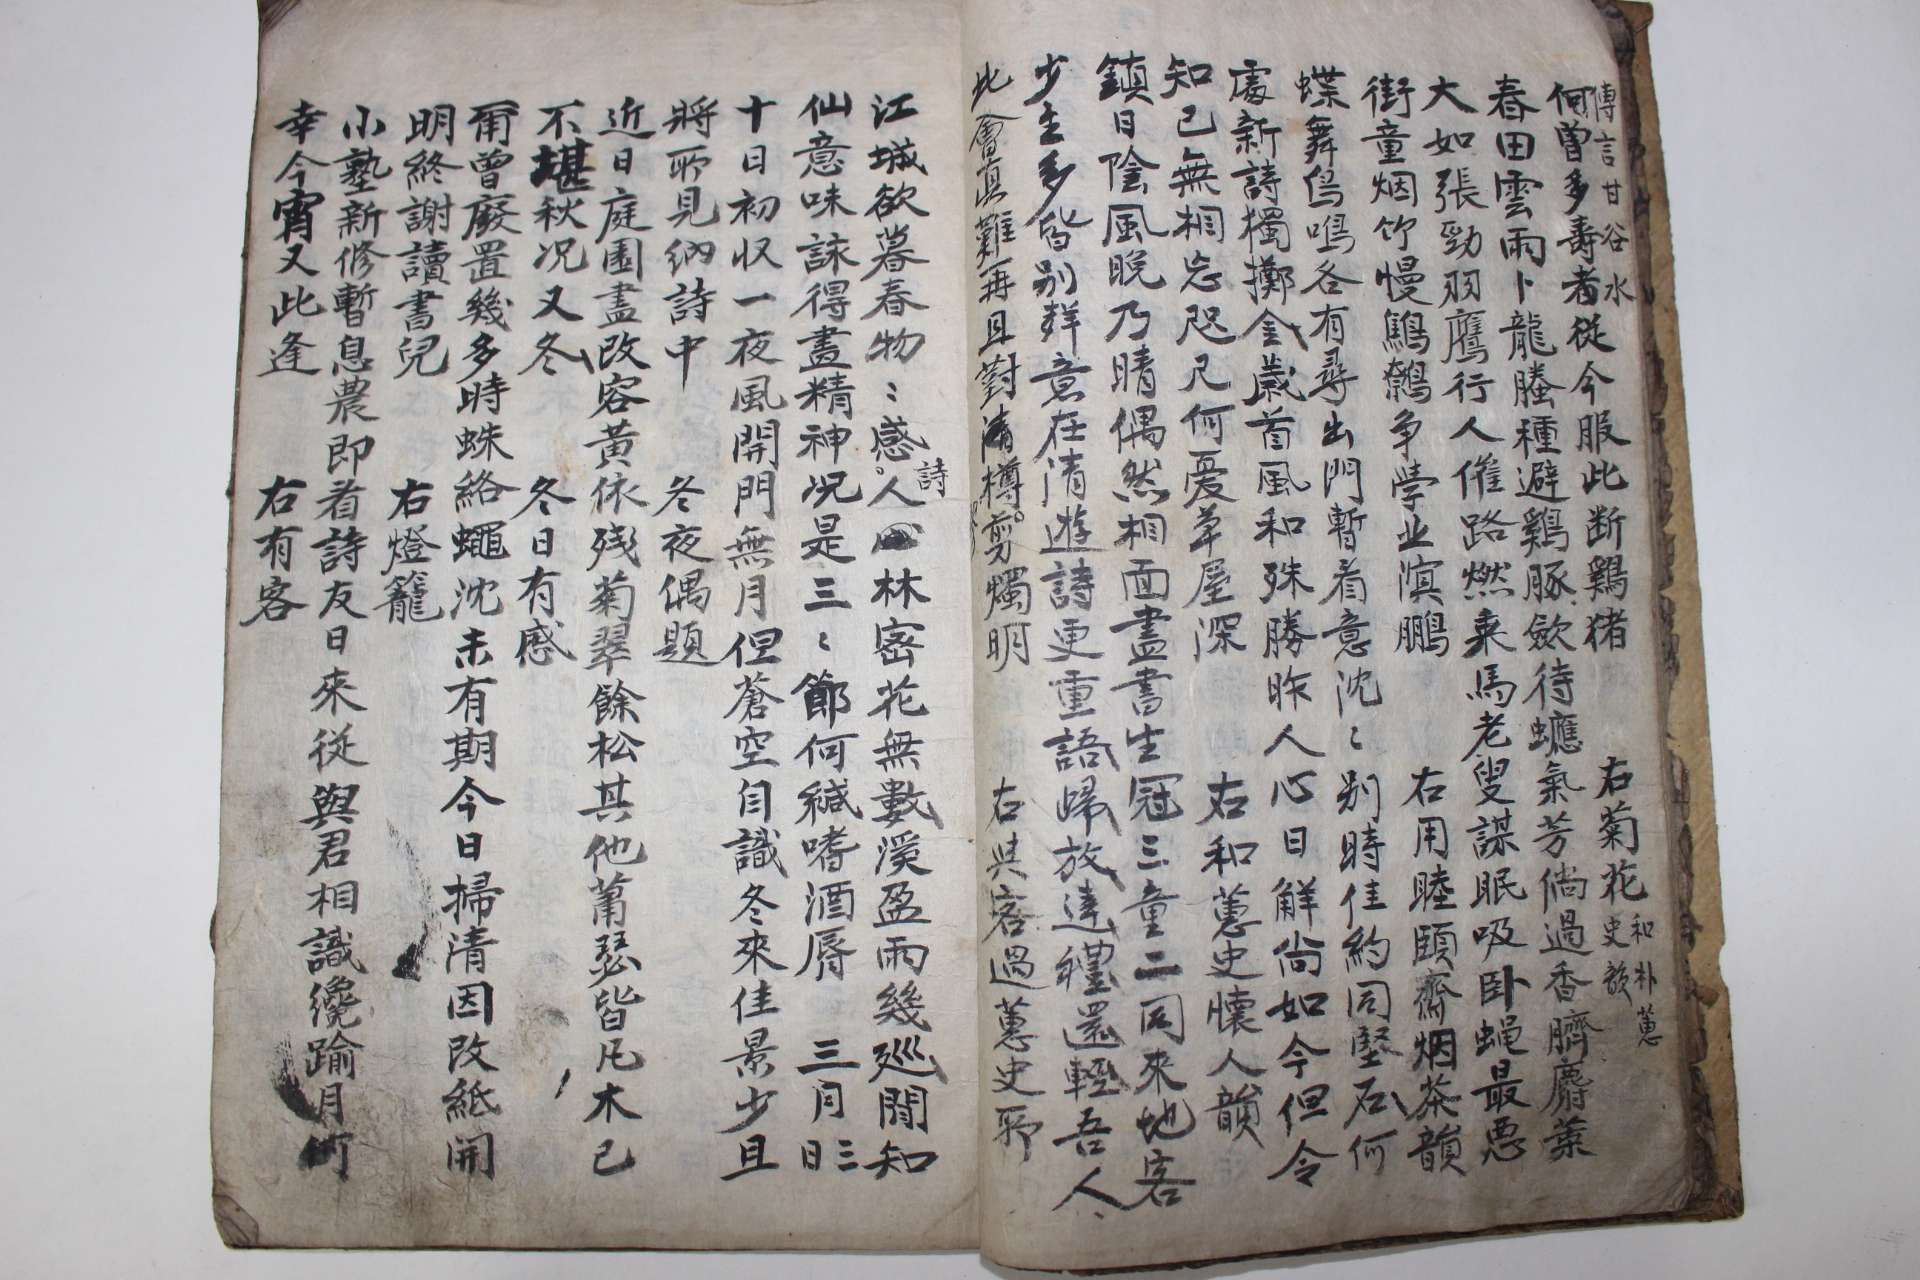 傳言甘谷水
何曽多壽者從今服此断鷄猪 右菊花 和朴蕙史韻
春田雲雨卜龍騰種避鷄豚斂待蟪氣芳倘過香臍麝葉
大如張勁羽鷹行人催路燃乗馬老叟謀眠吸卧蝿最悪
街童烟竹慢鷦鷯争學业溟鵬 右用睦頤齋烟茶韻
蝶舞鳥鳴各有尋出門暫看意沈〻別時佳約同堅石何
處新詩獨擲金歳首風和殊勝昨人心日解尙如今但令
知己無相忘咫尺何憂草屋深 右和蕙史懷人韻
鎮日陰風晩乃晴偶然相面盡書生冠三童二同來地客
少主多皆別群意在清遊詩更重語帰放達禮還輕吾人
此會眞難再且對清樽剪燭明 右與客過蕙史所
江城欲暮春物〻感詩人 林密花無數溪盈雨幾巡閒知
仙意味詠得盡精神况是三〻節何緘嗜酒脣 三月三日
十日初収一夜風開門無月但蒼空自識冬來佳景少且
將所見納詩中 冬夜偶題
近日庭園盡改容黄依残菊翠餘松其他蕭瑟皆凡木已
不堪秋况又冬 冬日有感
爾曽廢置幾多時蛛絡蠅沈未有期今日掃清因改紙開
明終謝讀書兒 右燈籠
小塾新修暫息農即看詩友日來從與君相識纔踰月何
幸今宵又此逢 右有客